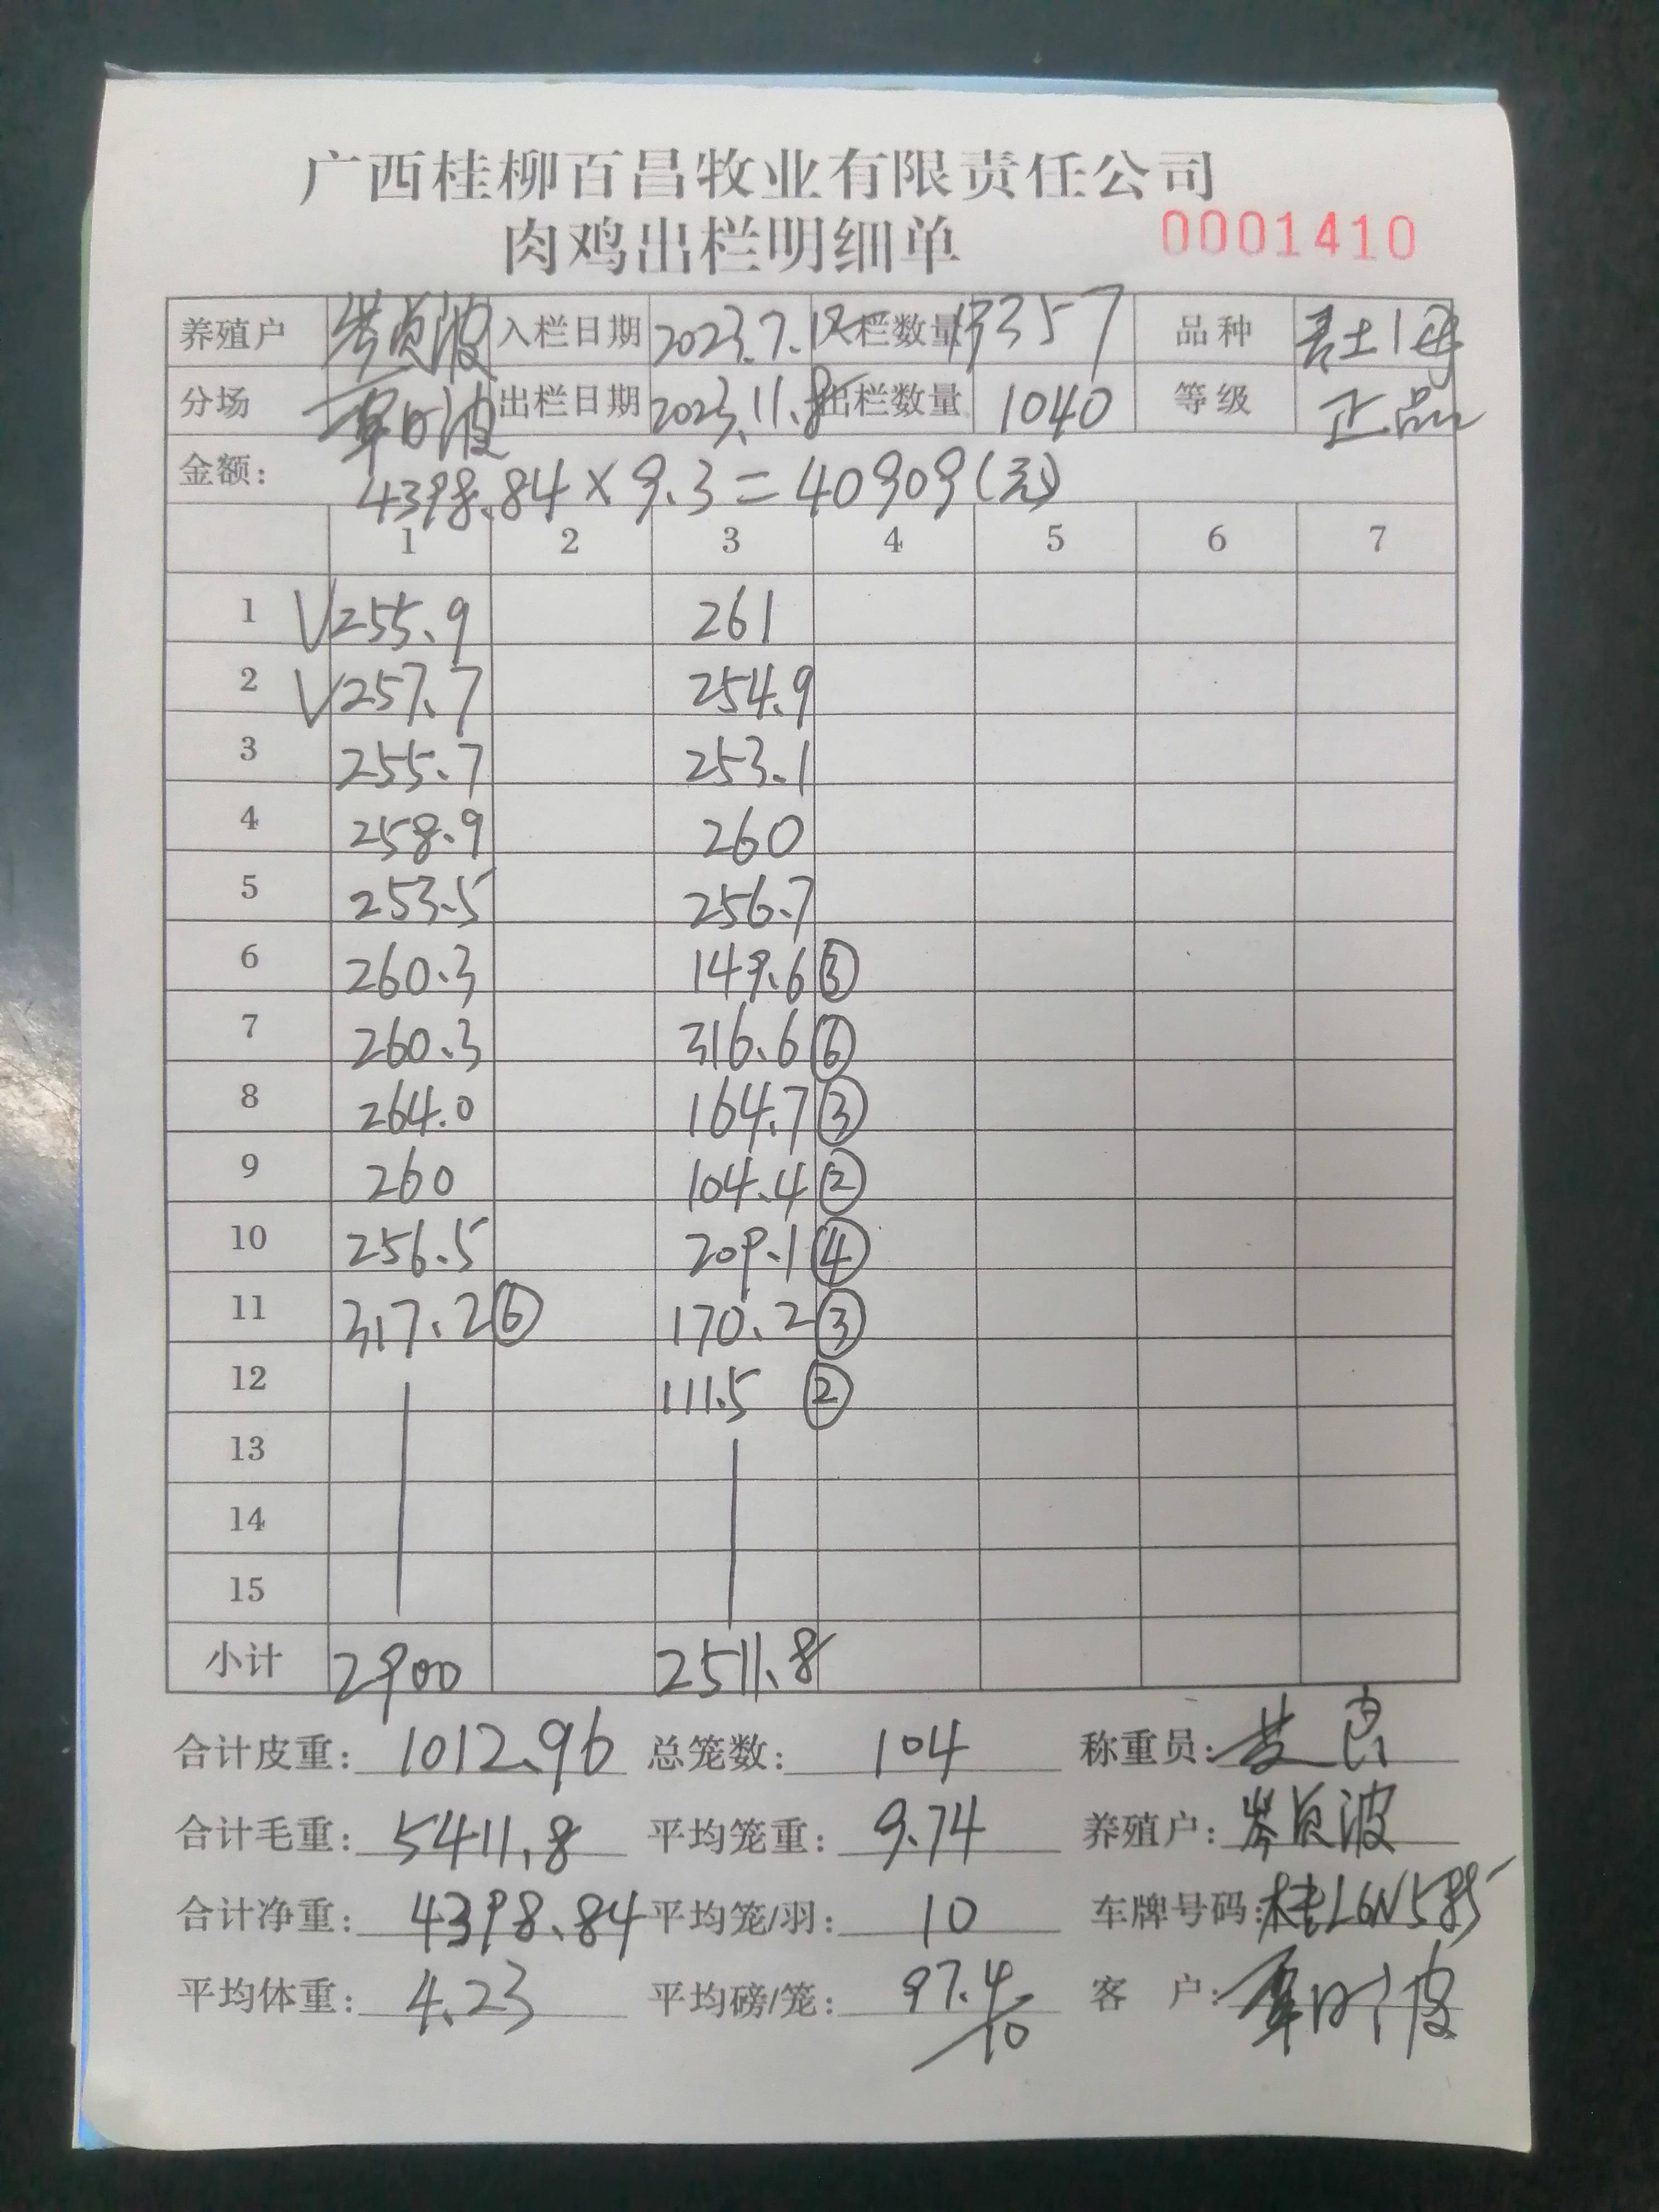 广西桂柳百昌牧业有限责任公司
肉鸡出栏明细单 0001410
养殖户 岑贞波 入栏日期 2023.7. 入栏数量 13357 品种
分场 覃日波 出栏日期 2023.11.8 出栏数量 1040 等级 正品
金额: 4398.84×9.3=40909(元)
1 2 3 4 5 6 7
1 √255.9 261
2 √257.7 254.9
3 255.7 253.1
4 258.9 260
5 253.5 256.7
6 260.3 149.6③
7 260.3 316.6⑥
8 264.0 164.7③
9 260 104.4②
10 256.5 209.1④
11 317.2⑥ 170.2③
12 111.5 ②
13
14
15
小计 2900 2511.8
合计皮重: 1012.96 总笼数: 104 称重员:
合计毛重: 5411.8 平均笼重: 9.74 养殖户: 岑贞波
合计净重: 4398.84 平均笼/羽: 10 车牌号码: 桂L6N585
平均体重: 4.23 平均磅/笼: 97.4/10 客 户: